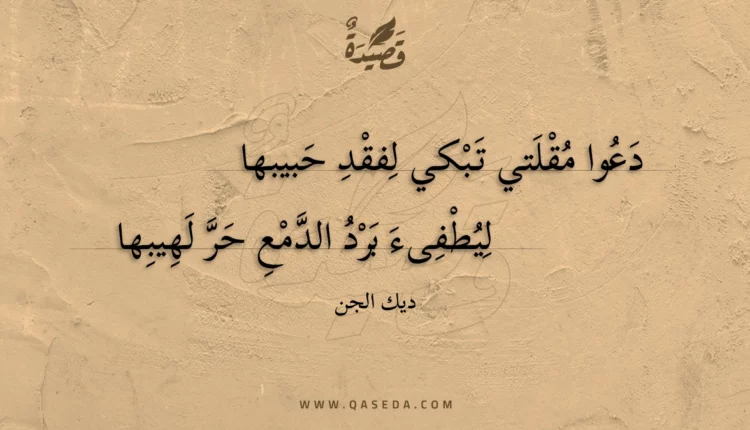 قَصِيدَةٌ
دَعُوا مُقْلَتي تَبْكي لِفقْدِ حَبيبها
لِيُطْفِىءَ بَرْدُ الدَّمْعِ حَرَّ لَهِيبِها
ديك الجن
WWW.QASEDA.COM